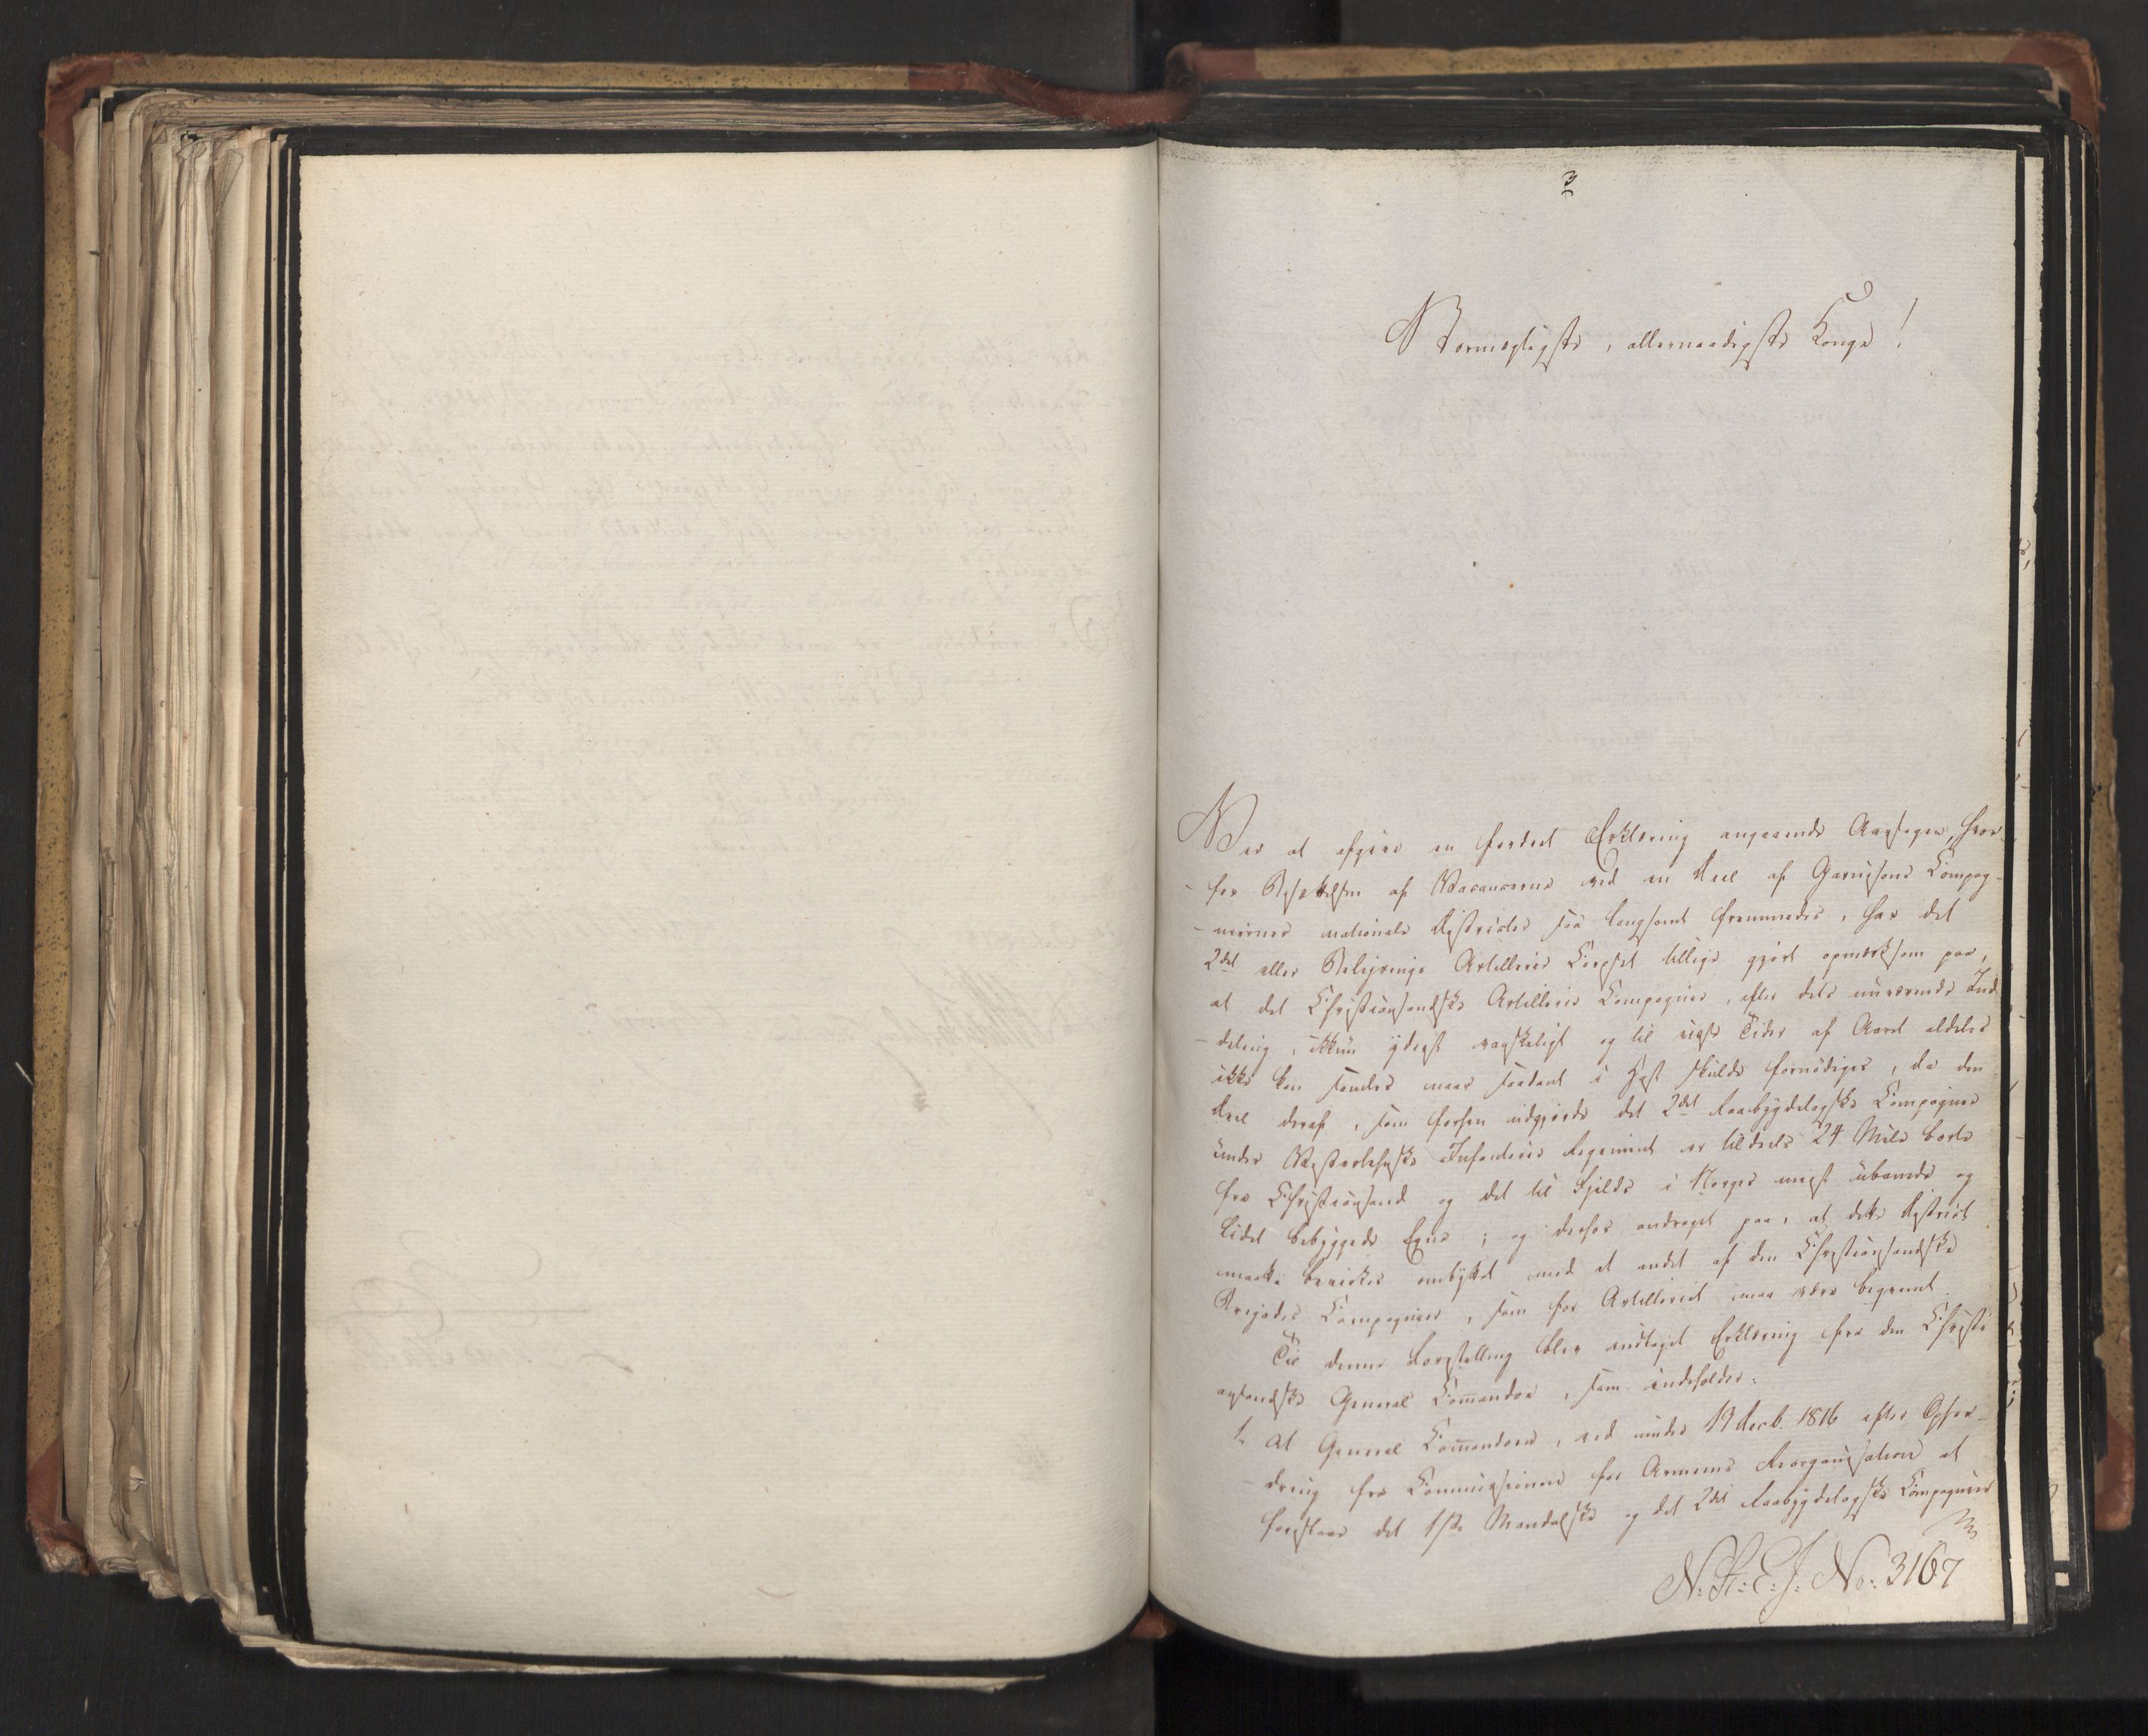 3
Stormægtigste, allernaadigste Konge!
Ved at afgive en fordret Erklæring angaaende Aarsagen, hvor-
for Besættelsen af Vacancerne ved en Deel af Garnisons Compag-
-niernes nationale Districter saa langsomt fremmedes, har det
2det eller Bergenhuusiske Artillerie Corpset tillige gjort opmærksom paa,
at det Christiansandske Artillerie Compagnie, efter dets nuværende Ind-
-deling, ikkun yderst vanskeligt og til visse Tider af Aaret aldeles
ikke kan samles naar saadant i Hast skulde fornødiges, da den
Deel deraf, som forhen udgjorde det 2det Raabygdelagske Compagnie
under Vesterlehnske Infanterie Regiment er tildeels 24 Mile borte
fra Christiansand og det til Fjelds i Norges meest ubanede og
lidet bebyggede Egne; og derfor andraget paa, at dette District
maatte bevirkes ombyttet med et andet af den Christiansandske
Brigades Compagnier, som for Artilleriet maa være beqvemt.
Til denne Forestilling blev indtaget Erklæring fra den Christi-
ansandske General Commandoe, som indeholder:
1. At General Commandoen, ved under 13 Decb. 1816 efter Opfor-
-dring fra Commissionen for Armeens Reorganisation at
foreslaae det 1ste Mandalske og det 2det Raabygdelagske Compagnier
N: R: E: J: No: 3167